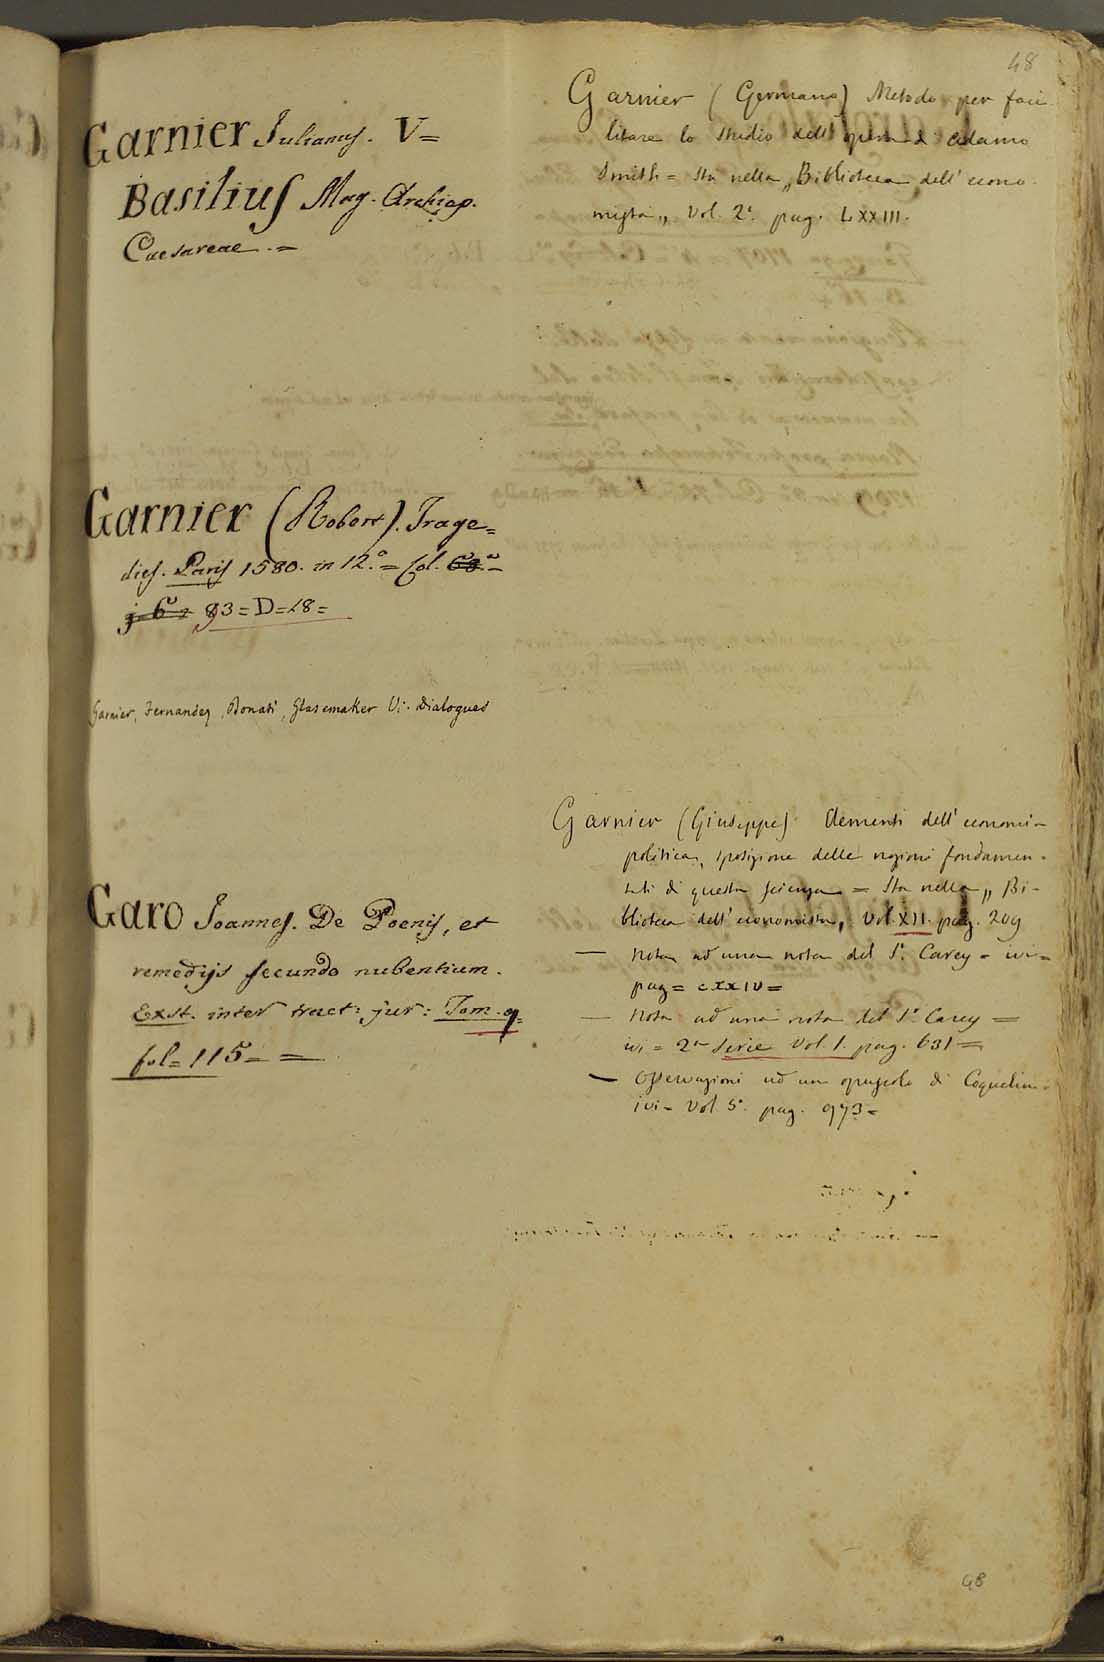 48
Garnier Julianus. V=
Basilius Mag. Archiep.
Caesareae. =
Garnier (Robert). Trage=
dies. Paris 1580. in 12.° = Col.
83 = D = 28 =
Garnier, Fernandez, Donati, Glasemaker Vi. Dialogues
Garo Joannes. De Poenis, et
remedijs secundo nubentium.
Exst. inter tract: jur: Tom. 9=
fol= 115 = =
Garnier (Germano) Metodo per faci-
litare lo studio dell' opera di Adamo
Smith = Sta nella „Biblioteca dell' econo-
mista„ Vol. 2°. pag. LXXIII.
Garnier (Giuseppe) Elementi dell' economi-
politica, sposizione delle nozioni fondamen-
tali di questa scienza = Sta nella „Bi-
blioteca dell' economista, Vol. XII. pag. 209
— Nota ad una nota del Sr. Carey = ivi =
pag = CXXIV =
— Nota ad una nota del Sr. Carey =
ivi = 2a Serie Vol. 1. pag. 631 =
— Osservazioni ad un opuscolo di Coquelin =
ivi = Vol. 5°. pag. 973 =
48